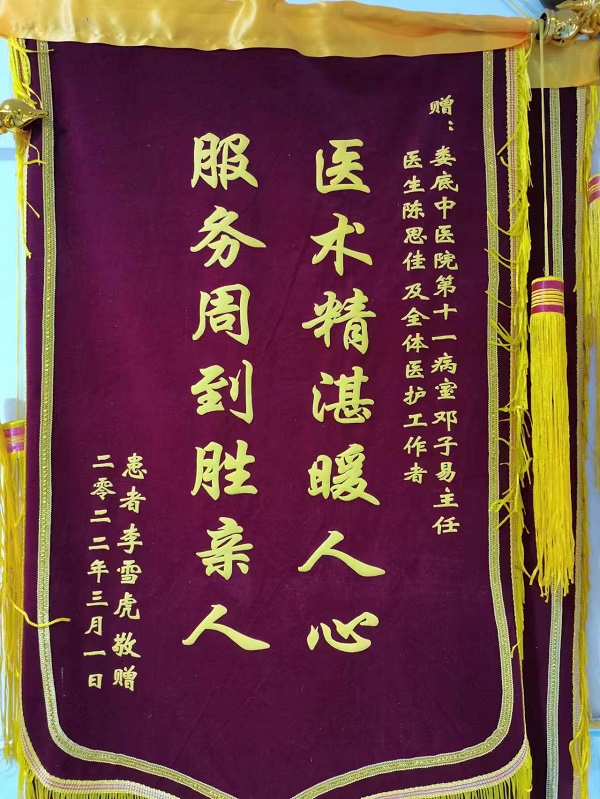 赠：娄底中医院第十一病室邓子易主任
医生陈思佳及全体医护工作者
医术精湛暖人心
服务周到胜亲人
患者李雪虎敬赠
二零二二年三月一日